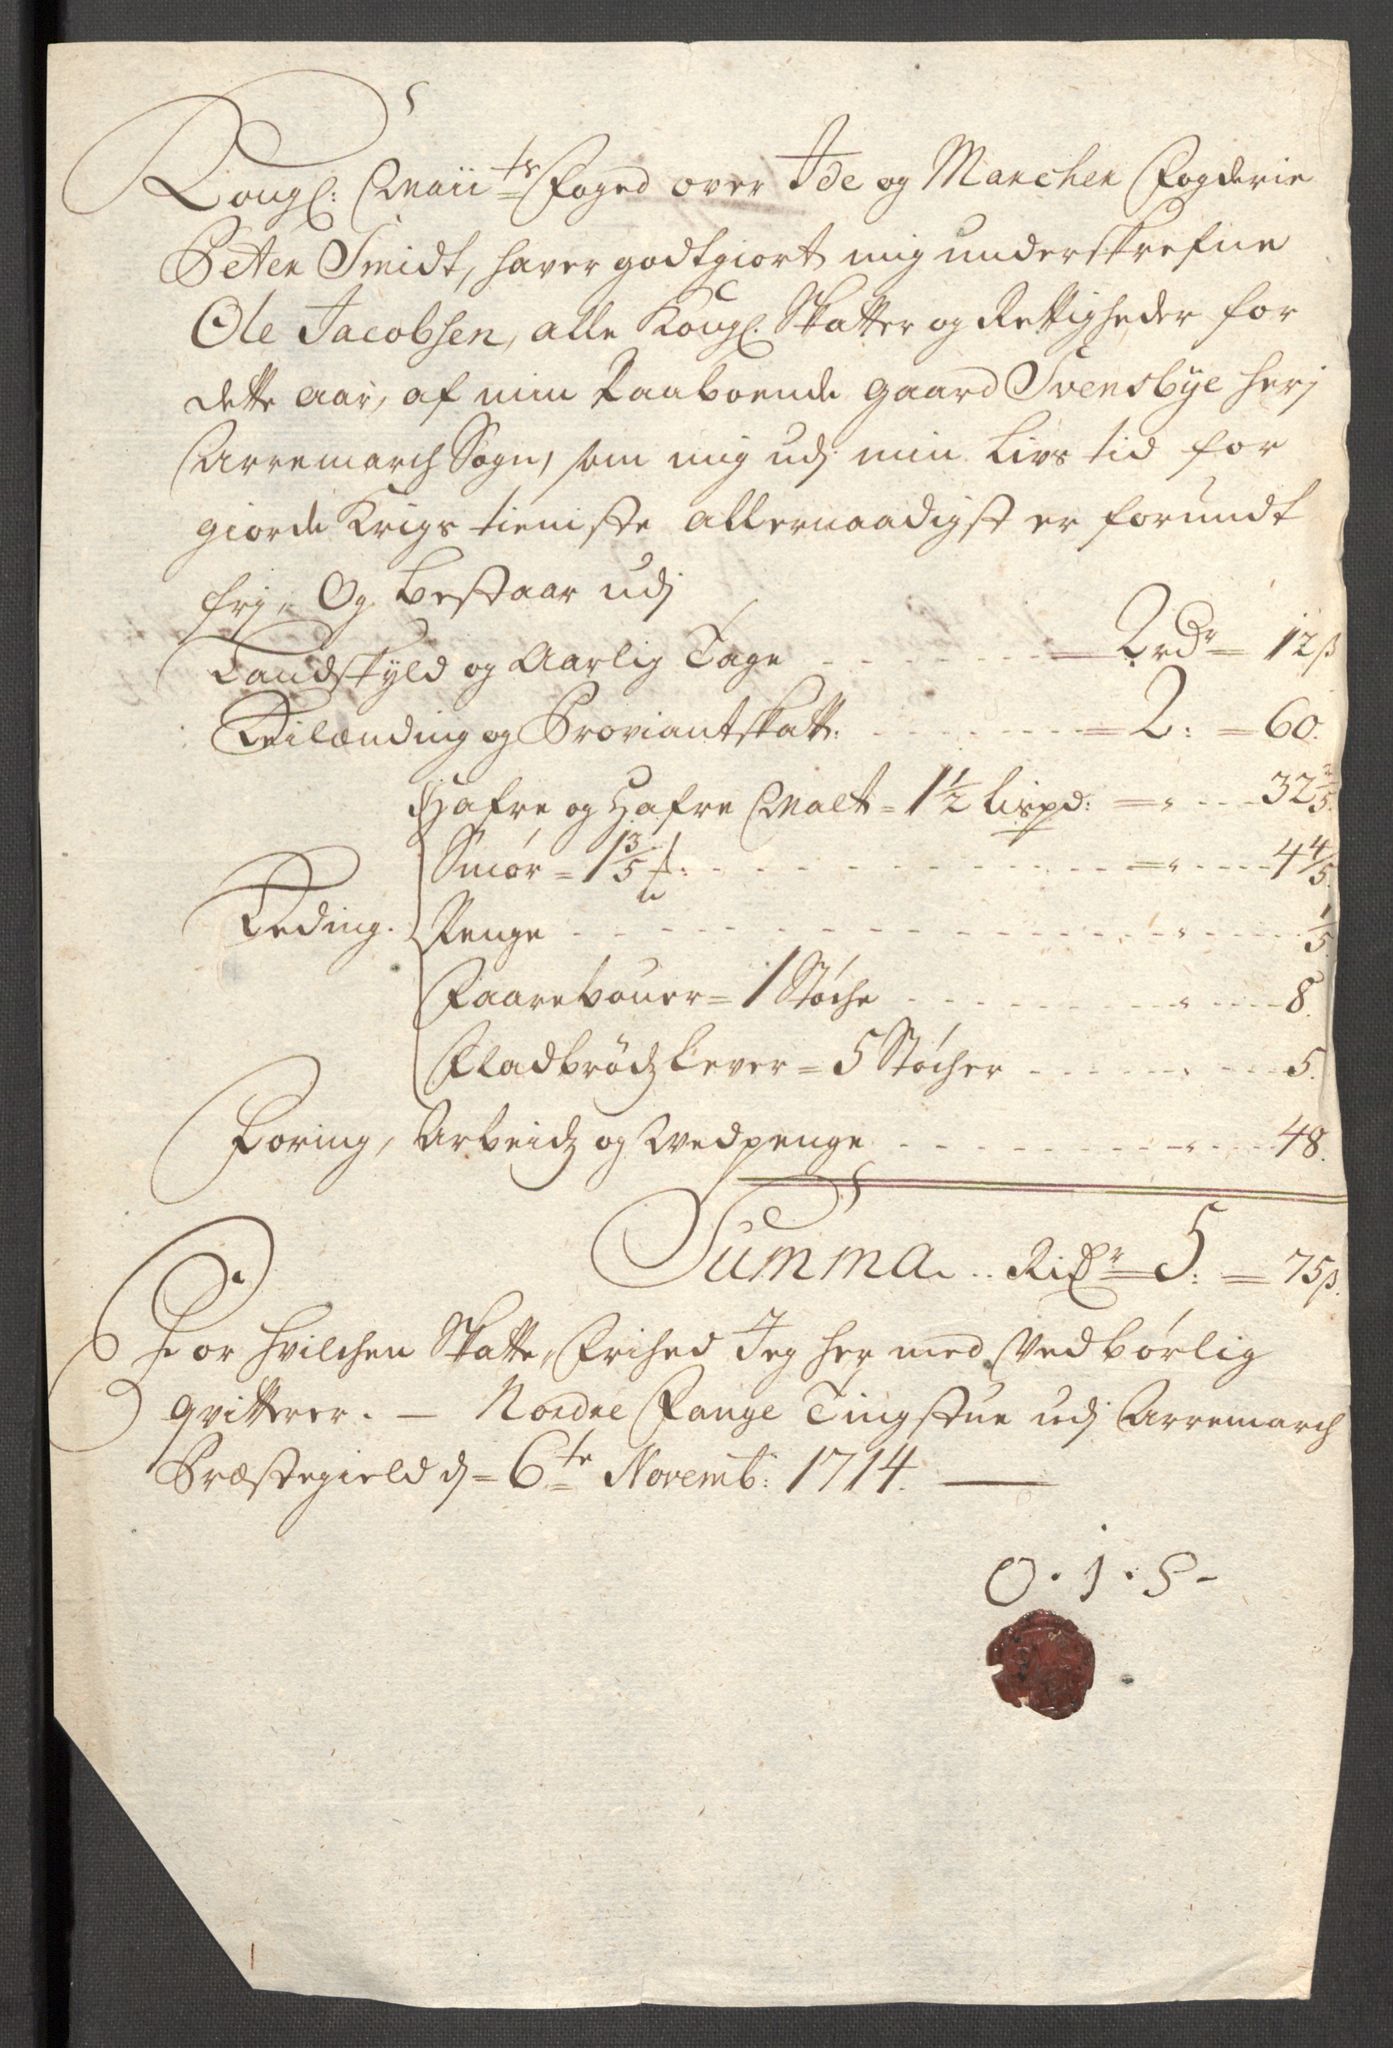 Kongl: Maii:ts Foged over Ide og Marchen Fogderie
Peter Smidt, haver godtgiort mig underskrefne
Ole Jacobsen, alle Kongl. Skatter og Rettigheder for
dette aar, af min Paaboende gaard Svensbye her j
Arremarch Sogn, som mig udj min Livs tid for
giorde Krigs tieniste allernaadigst er forundt
frj, Og bestaar udj
Landskyld og Aarlig Tage - - - - - = 2 rdr = 12 ß
Leilænding og Proviantskatt: - - - - - = 2: = 60.
Hafre og Hafre Malt = 1 1/2 Lispd: = " - - - 32 2/5.
Smør = 1 3/5 ℔: - - - - - = " - - - 4 4/5.
Leding. Penge - - - - - " - - - 1/5
Faarebouer = 1 Støche - - - - - " - - - 8.
Fladbrødz Lever = 5 Støcher - - - - - " - - - 5.
Foring, Arbeidz og Wedpenge - - - - - " - - - 48.
Summa .. Rixdr = 5: = 75 ß.
For hvilchen Skatte, Frihed Jeg her med Vedbørlig
qvitterer. — Nordre Fange Tingstue udj Arremarch
Præstegield d = 6te Novemb: 1714. —
O . I . S -